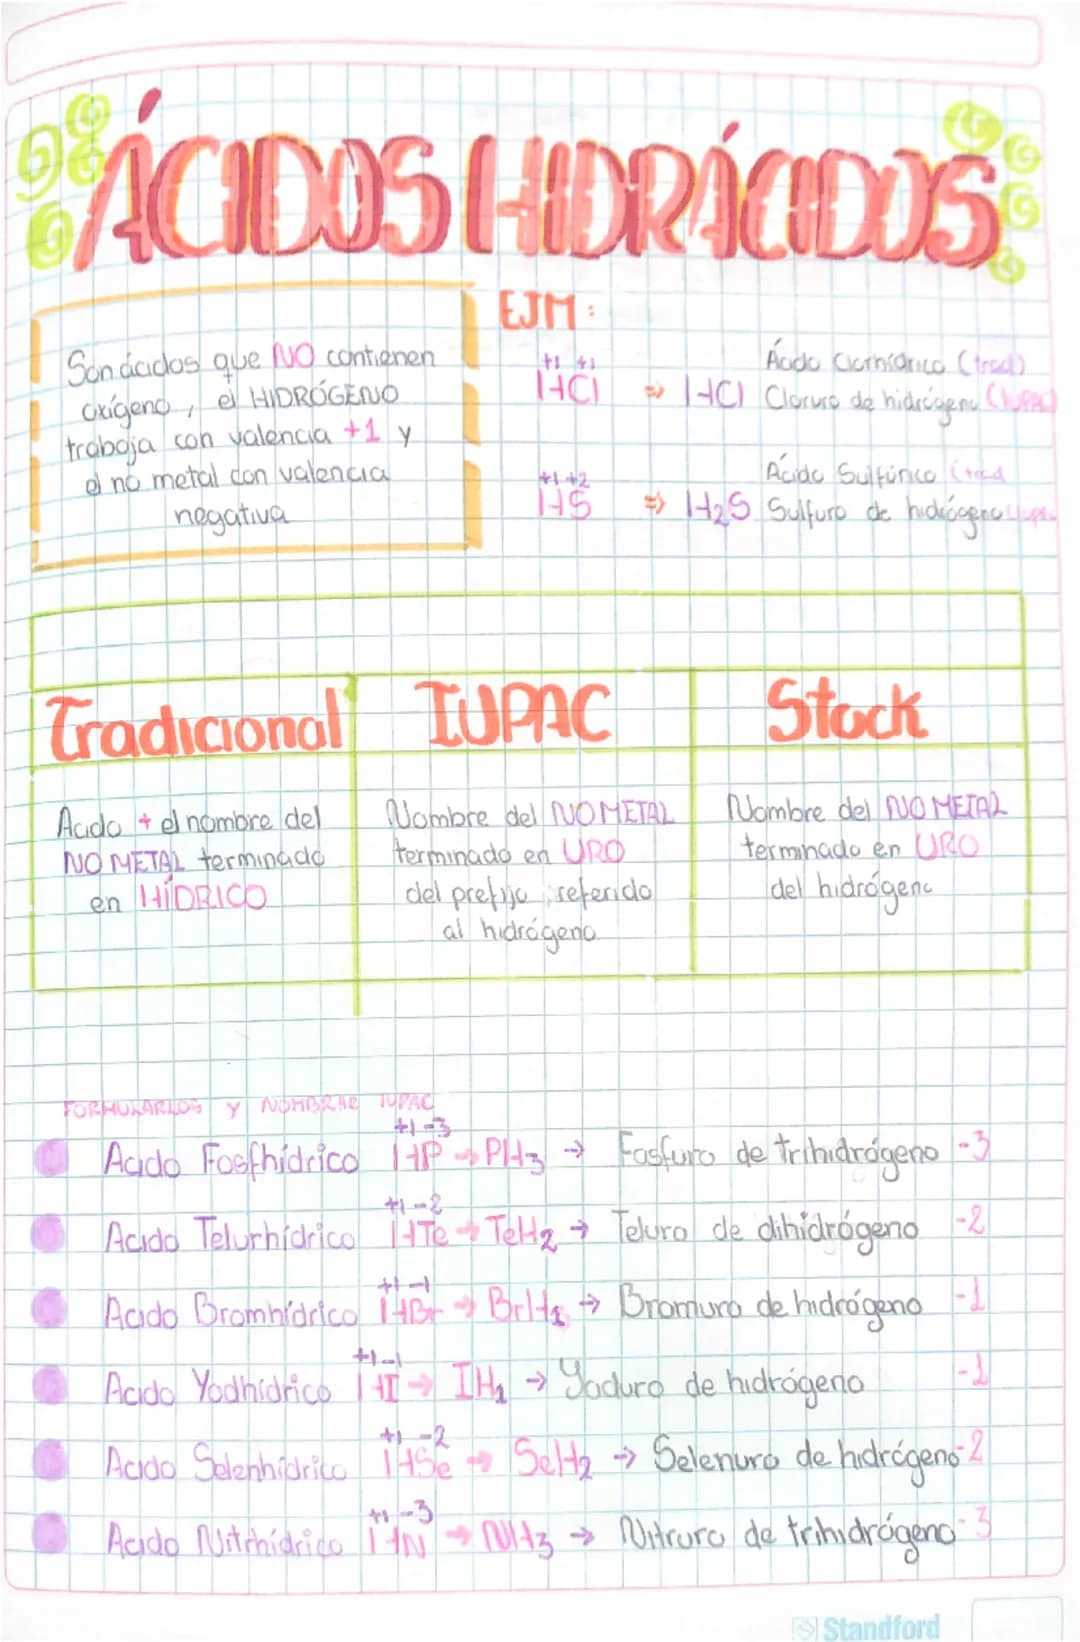 ÁCIDOS HIDRÁCIDOS
Son ácidos que NO contienen
oxígeno, el HIDRÓGENO
trabaja con valencia +1 y
el no metal con valencia
negativa
EJM:
+1 +1
HCl ⇒ HCl
Ácido Clorhídrico (trad)
Cloruro de hidrógeno (IUPAC)
+1 +2
HS ⇒ H₂S
Ácido Sulfúrico (trad
Sulfuro de hidrógeno
Tradicional
IUPAC
Stock
Acido + el nombre del
NO METAL terminado
en HÍDRICO
Nombre del NO METAL
terminado en URO
del prefijo referido
al hidrógeno
Nombre del NO METAL
terminado en URO
del hidrógeno
FORMULARLOS Y NOMBRAR IUPAC
+1 -3
Acido Fosfhídrico HP → PH₃ → Fosfuro de trihidrógeno -3
+1 -2
Acido Telurhídrico HTe → TeH₂ → Teluro de dihidrógeno -2
+1 -1
Acido Bromhídrico HBr → BrH₁ → Bromuro de hidrógeno -1
+1 -1
Acido Yodhídrico HI → IH₁ → Yoduro de hidrógeno -1
+1 -2
Acido Selenhídrico HSe → SeH₂ → Selenuro de hidrógeno -2
+1 -3
Acido Nitrhídrico HN → NH₃ → Nitruro de trihidrógeno -3
Standford